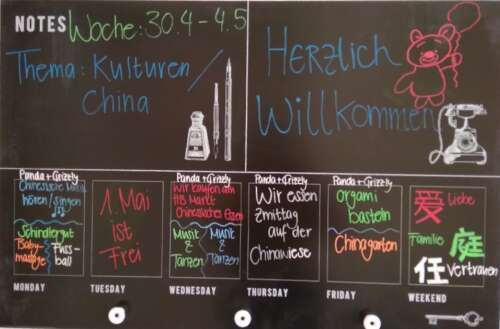 NOTES
Woche: 30.4-4.5
Thema: Kulturen
China
Herzlich
Willkommen
Panda + Grizzly
Chinesische Musik
hören / singen
Schindlergut
Baby-
massage
Fuss-
ball
MONDAY
1. Mai
ist
Frei
TUESDAY
Panda + Grizzly
Wir kaufen am
HB Markt
Chinesisches Essen
Musik
&
Tanzen
Musik
&
Tanzen
WEDNESDAY
Panda + Grizzly
Wir essen
Zmittag
auf der
Chinawiese
THURSDAY
Panda + Grizzly
Orgami
basteln
Chinagarten
FRIDAY
爱 Liebe
Familie 庭
任 Vertrauen
WEEKEND